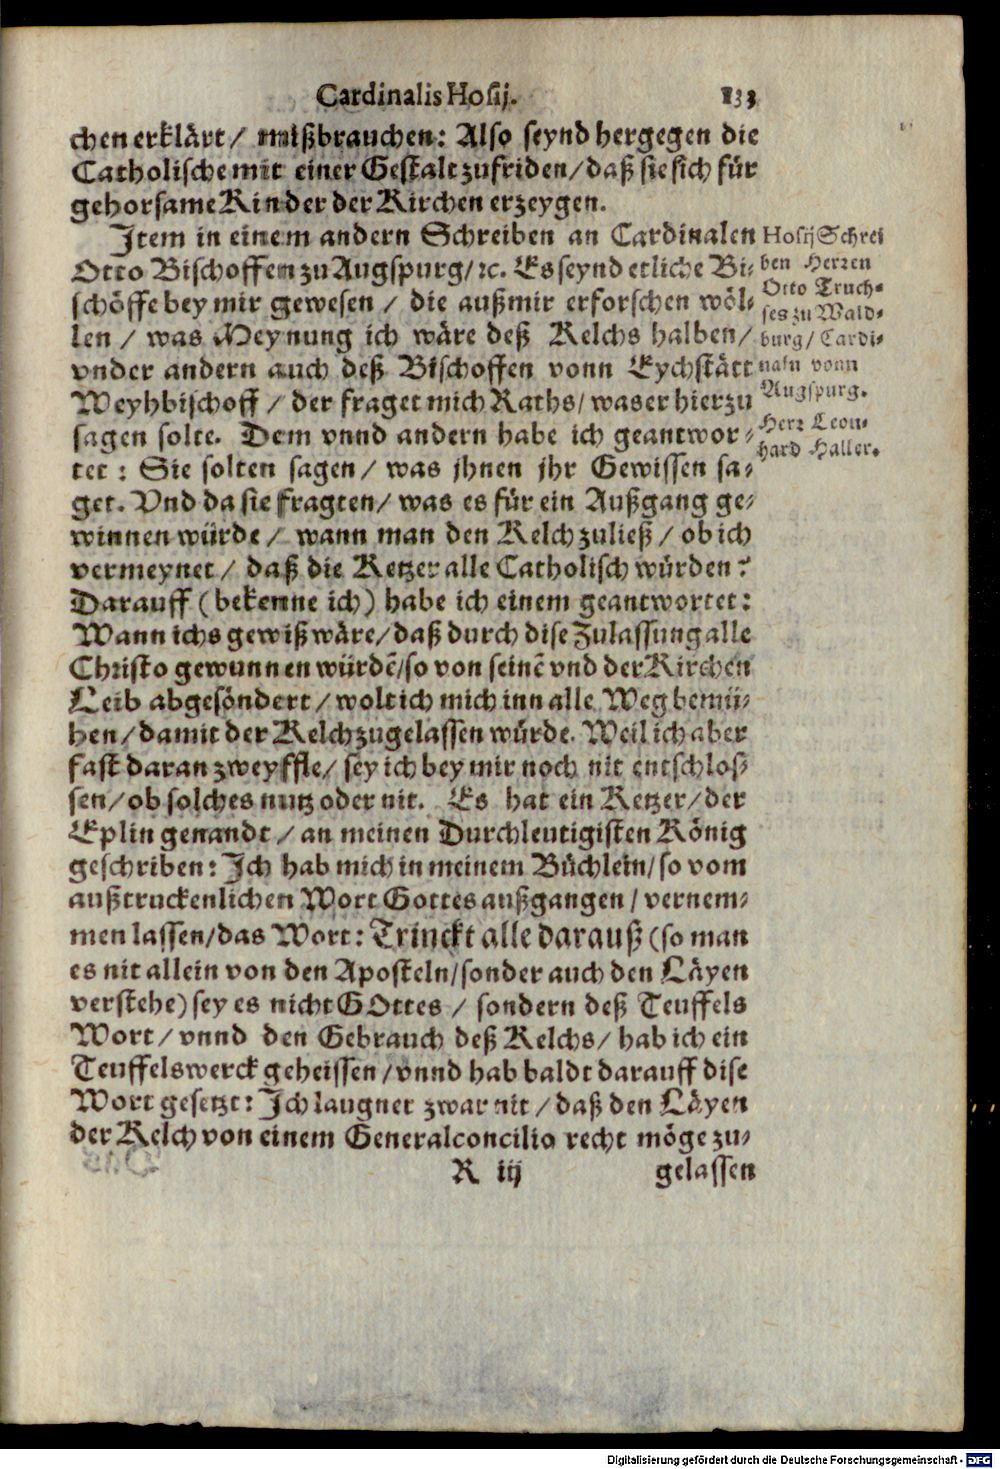 Cardinalis Hosij. 133
chen erklärt / mißbrauchen: Also seynd hergegen die
Catholische mit einer Gestalt zufriden / daß sie sich für
gehorsame Kinder der Kirchen erzeygen.
Item in einem andern Schreiben an Cardinalen
Otto Bischoffen zu Augspurg / ꝛc. Es seynd etliche Bi-
schöffe bey mir gewesen / die auß mir erforschen wöl-
len / was Meynung ich wäre deß Kelchs halben /
vnder andern auch deß Bischoffen vonn Eychstätt
Weyhbischoff / der fraget mich Raths / was er hierzu
sagen solte. Dem vnnd andern habe ich geantwor-
tet: Sie solten sagen / was jhnen jhr Gewissen sa-
get. Vnd da sie fragten / was es für ein Außgang ge-
winnen würde / wann man den Kelch zuließ / ob ich
vermeynet / daß die Ketzer alle Catholisch würden?
Darauff (bekenne ich) habe ich einem geantwortet:
Wann ichs gewiß wäre / daß durch dise Zulassung alle
Christo gewunnen würdē / so von seinē vnd der Kirchen
Leib abgesöndert / wolt ich mich inn alle Weg bemü-
hen / damit der Kelch zugelassen würde. Weil ich aber
fast daran zweyffle / sey ich bey mir noch nit entschlos-
sen / ob solches nutz oder nit. Es hat ein Ketzer / der
Eplin genandt / an meinen Durchleutigisten König
geschriben: Ich hab mich in meinem Büchlein / so vom
außtruckenlichen Wort Gottes außgangen / vernem-
men lassen / das Wort: Trinckt alle darauß (so man
es nit allein von den Aposteln / sonder auch den Läyen
verstehe) sey es nicht GOttes / sondern deß Teuffels
Wort / vnnd den Gebrauch deß Kelchs / hab ich ein
Teuffelswerck geheissen / vnnd hab baldt darauff dise
Wort gesetzt: Ich laugner zwar nit / daß den Läyen
der Kelch von einem Generalconcilio recht möge zu-
R iij gelassen
Hosij Schrei
ben Herren
Otto Truch-
ses zu Wald-
burg / Cardi-
naln vonn
Augspurg.
Herr Leon-
hard Haller.
Digitalisierung gefördert durch die Deutsche Forschungsgemeinschaft - DFG